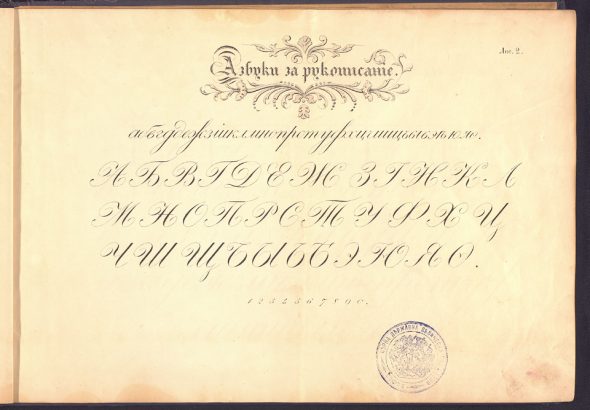 Лис. 2.
Азбуки за рукописате.
а б в г д е ж з і и к л м н о п р с т у ф х ц ч ш щ ъ ы ь э ю я
А Б В Г Д Е Ж З І Н К Л
М Н О П Р С Т У Ф Х Ц
Ч Ш Щ Ъ Ы Ь Ѣ Э Ю Я Ѳ.
1 2 3 4 5 6 7 8 9 0.